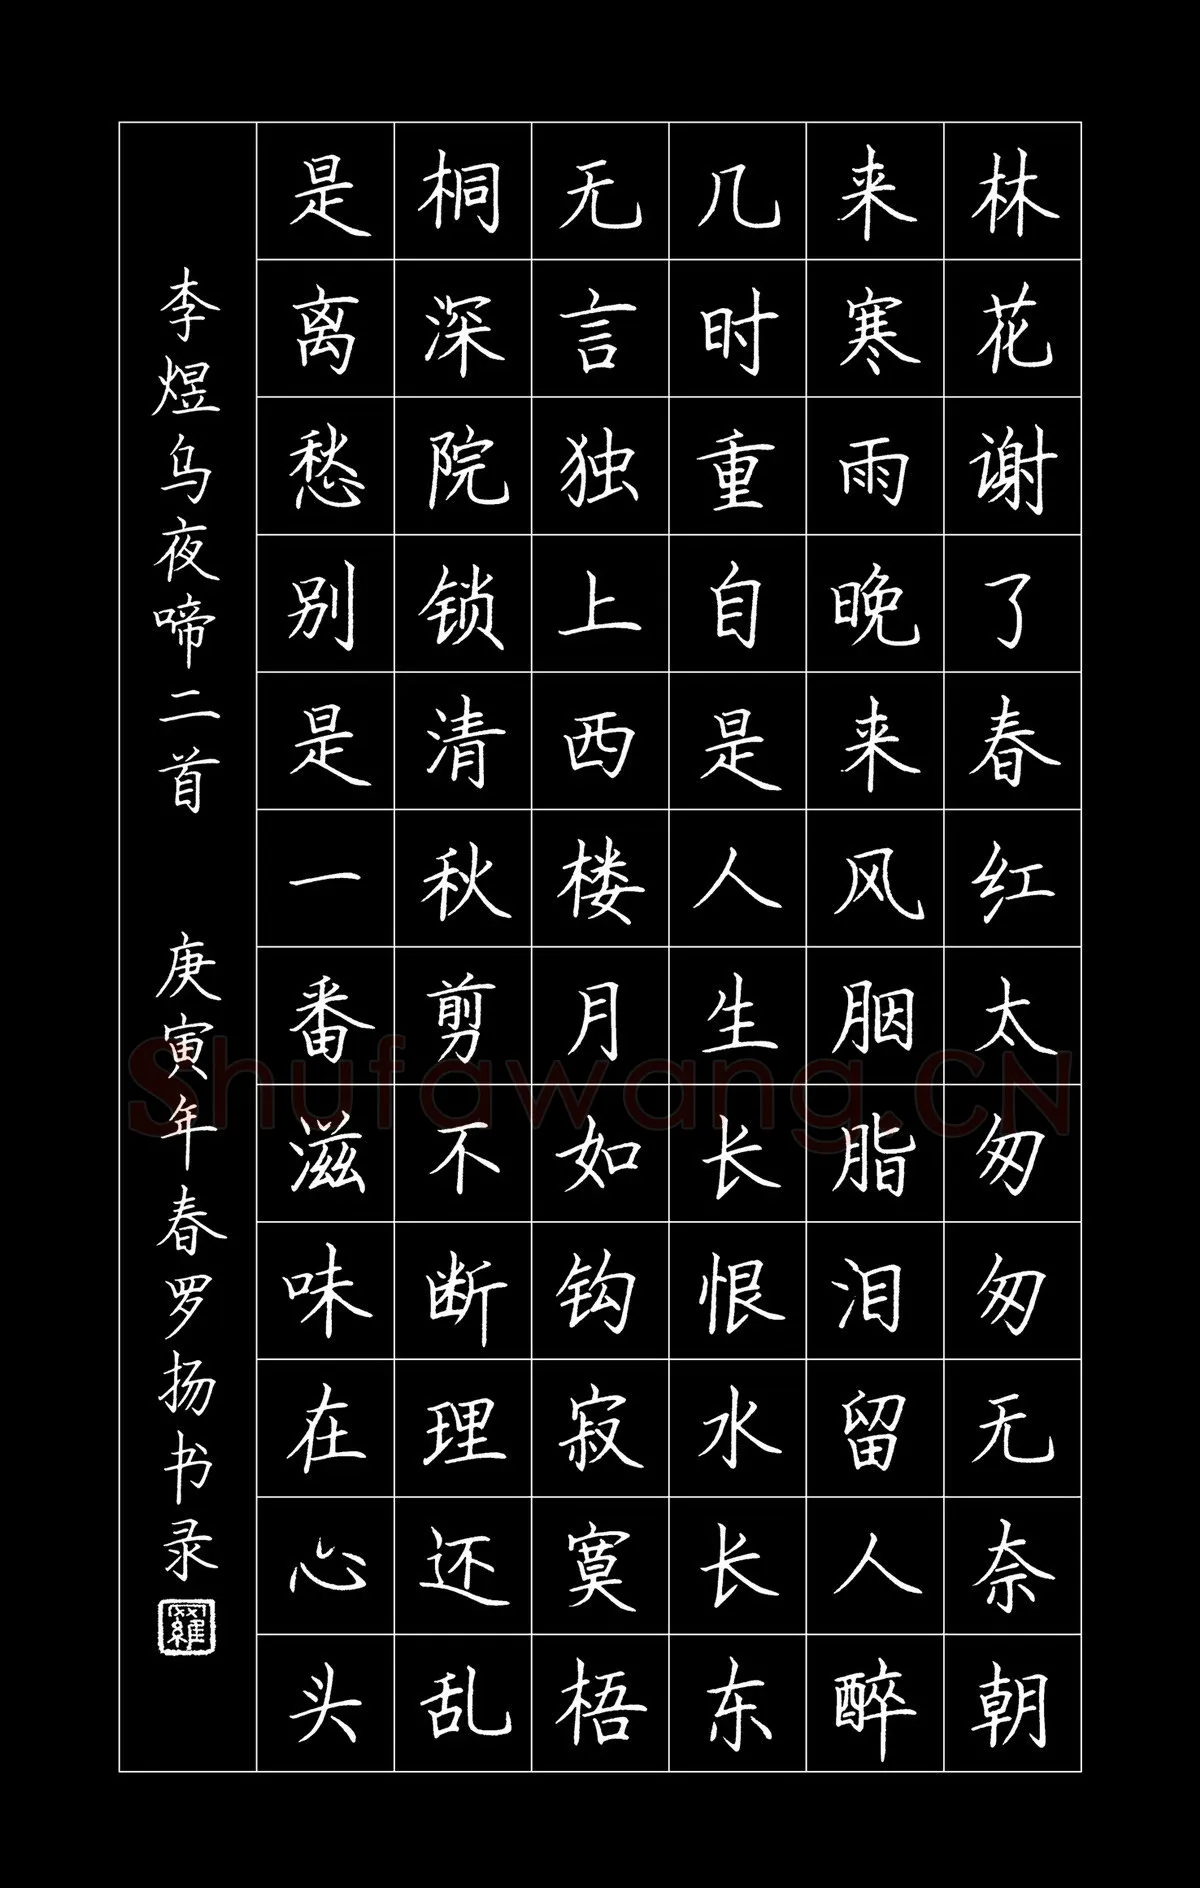 林花谢了春红太匆匆无奈朝
来寒雨晚来风胭脂泪留人醉
几时重自是人生长恨水长东
无言独上西楼月如钩寂寞梧
桐深院锁清秋剪不断理还乱
是离愁别是一番滋味在心头
李煜乌夜啼二首 庚寅年春罗扬书录
羅
Shufawang.CN